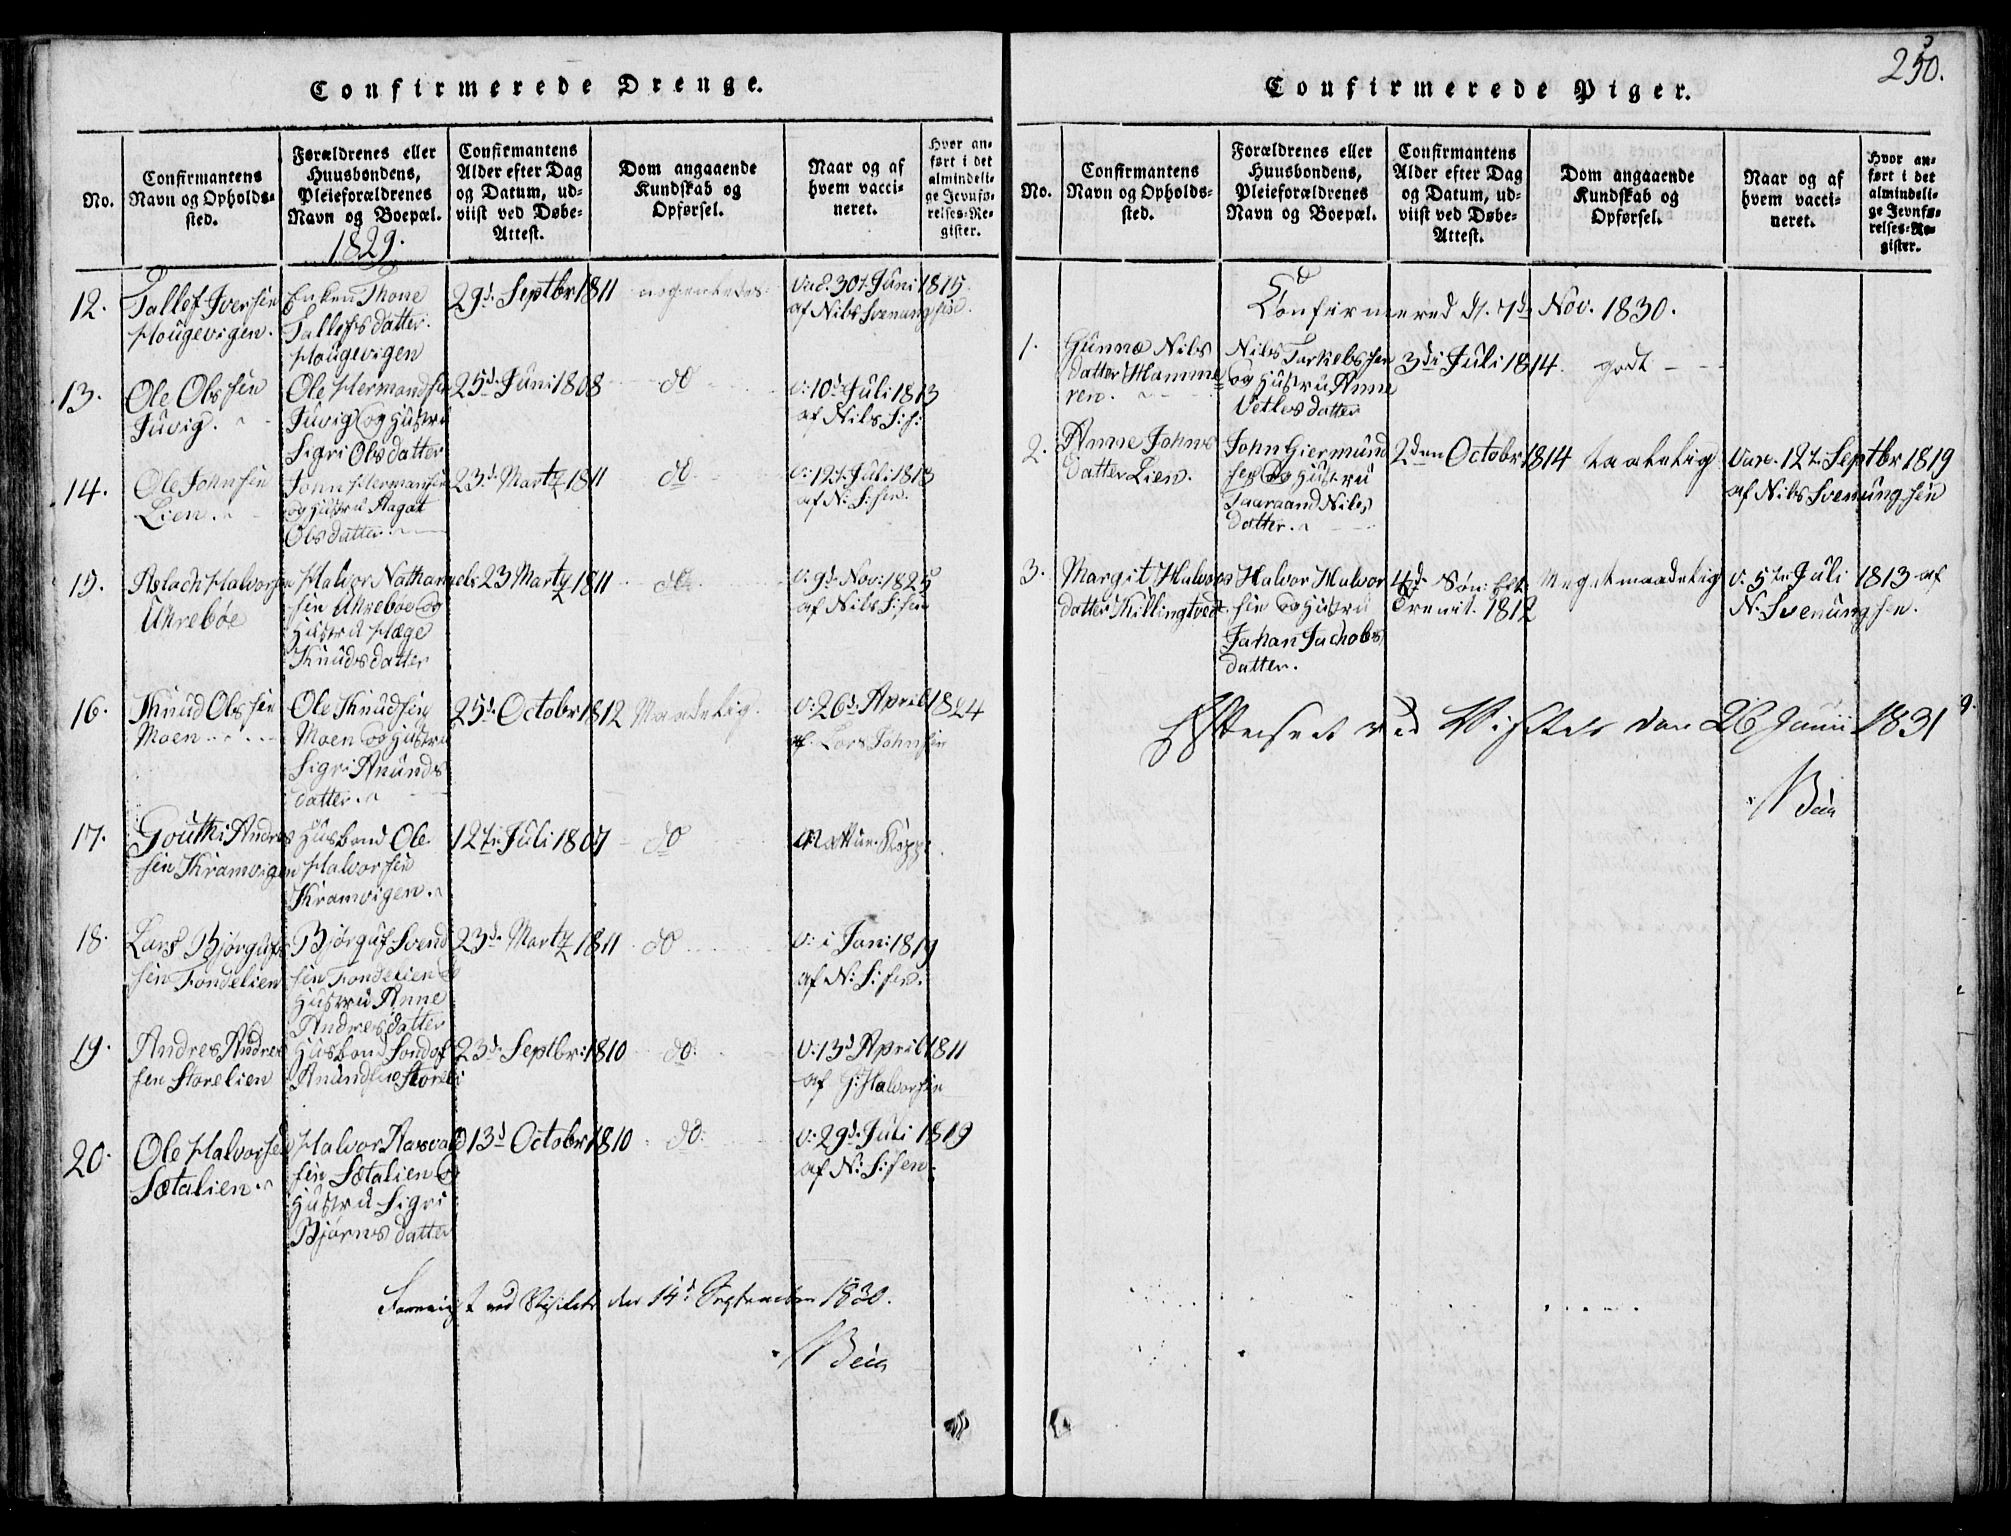 250.
Confirmerede Drenge.
No.
Confirmantens
Navn og Opholds-
sted.
Forældrenes eller
Huusbondens,
Pleieforældrenes
Navn og Boepæl.
1829.
Confirmantens
Alder efter Dag
og Datum, ud-
viist ved Døbe-
Attest.
Dom angaaende
Kundskab og
Opførsel.
Naar og af
hvem vacci-
neret.
Hvor an-
ført i det
almindeli-
ge Jevnfø-
relses-Re-
gister.
12.
Tallef Iversen
Hougevigen.
Enken Thone
Tallefsdatter.
Hougevigen
29d Septbr 1811
Vac. 30t Juni 1815.
af Nils Svenungsen.
13.
Ole Olssen
Juvig.
Ole Hermandsen
Juvig og Hustru
Sigri Olsdatter
25d Juni 1808
do
v: 10d Juli 1813
af Nils S:s:
14.
Ole Johnsen
Lien.
John Hermansen
og Hustru Aagat
Olsdatter.
23d Marty 1811
do
v: 12t Juli 1813
af N: S:sen.
15.
Aslach Halvorsen
Uhrebøe
Halvor Nathaniels
sen Uhrebøe og
Hustru Hæge
Knudsdatter
23 Marty 1811
do
v: 9d Nov: 1825
af Nils S:sen
16.
Knud Olssen
Moen
Ole Knudsen
Moen og Hustru
Sigri Anunds
datter.
25d Octobr 1812
Maadelig.
v: 26d April 1824
af Lars Johnsen
17.
Gouthi Andres
sen Kramvigen
Husbond Ole
Halvorsen
Kramvigen.
12te Juli 1807
do
18.
Lars Bjørgufs
sen Fondelien
Bjørguf Svend
sen Fondelien og
Hustru Anne
Andresdatter
23d Marty 1811
do
v: i Jan: 1819
af N: S:sen.
19.
Andres Andres
sen Storelien
Husbond Sondof
Anundsen Storeli
23d Septbr: 1810
do.
v: 13d April 1811
af G: Halvorsen
20.
Ole Halvorsen
Sætalien.
Halvor Aasvald
sen Sætalien og
Hustru Sigri
Bjørnsdatter
13d Octobr 1810
do:
v: 29d Juli 1819
af N: S:sen.
Foreviist ved Visitats den 14d September 1830.
Confirmerede Piger.
No.
Confirmantens
Navn og Opholds-
sted.
Forældrenes eller
Huusbondens,
Pleieforældrenes
Navn og Boepæl.
Confirmantens
Alder efter Dag
og Datum, ud-
viist ved Døbe-
Attest.
Dom angaaende
Kundskab og
Opførsel.
Naar og af
hvem vacci-
neret.
Hvor an-
ført i det
almindeli-
ge Jevnfø-
relses-Re-
gister.
Confirmered d. 7d Nov. 1830.
1.
Gunnæ Nils
datter Hamme
ren.
Nils Tarkelssen
og Hustru Anne
Vetlesdatter
3die Juli 1814.
godt
2.
Anne Johns
datter Lien.
John Giermund
sen og Hustru
Taaraand Nils
datter.
2den Octobr 1814
taalelig
Vac. 12te Septbr 1819
af Nils Svenungsen
3.
Margit Halvors
datter Killingtved
Halvor Halvor
sen og Hustru
Johan Jachobs
datter.
4d Søn: Eft
Trenit. 1812
Megetmaadelig
v. 5te Juli 1813 af
N: Svenungsen.
ved Visitats den 26 Junii 1831